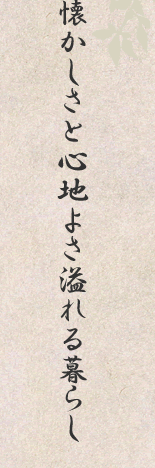 懐かしさと心地よさ溢れる暮らし